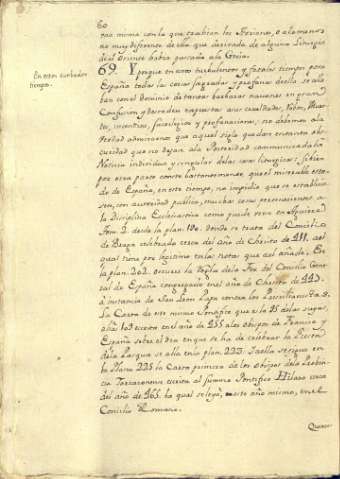 60
ma misma con la que usaban los Arrianos, o alomenos
no muy diferente de ella que derivada de alguna Liturgia
del Oriente habia passado a la Grecia.
En estos turbados
tiempos.
69. Y porque en estos turbulentos y fatales tiempos para
España todas las cosas sagradas y profanas de ella se alla
ban con el dominio de tantas barbaras naciones en gran
Confusion y desorden expuestas a sus crueldades, Robos, Muer
tes, incendios, sacrilegios y profanaciones, no debemos a la
verdad admirarnos que aquel siglo quedase en tanta obs
curidad que no dejase a la Posteridad comunicada la
Noticia individua y singular de las cosas liturgicas; si bien
por otra parte consta bastantemente, que el miserable esta
do de España, en este tiempo, no impidio que se establecie
sen, con autoridad publica, muchas cosas pertenecientes a
la Disciplina Ecclesiastica como puede verse en Aguirre
Tom. 2. desde la plan. 180. donde se trata del Concilio
de Braga celebrado cerca del año de Christo de 411. al
qual tiene por legitimo en las notas que del añade. En
la plan. 202. occurre la Regla de la Fee del Concilio Gene
ral de España congregado en el año de Christo de 447.
à instancia de San Leon Papa contra los Priscilianistas.
La Carta de este mismo Pontifice que es la 95 de las suyas,
escrita en el año de 455 a los obispos de Francia y
España sobre el Dia en que se ha de celebrar la Fiesta
de la Pasqua se alla en la plan. 233. Y a ella se sigue en
la Plana 235 la Carta primera de los obispos de la Probin
cia Tarraconense escrita al Summo Pontifice Hilaro cerca
del año de 465. la qual se leyò, en este año mismo, en el
Concilio Romano.